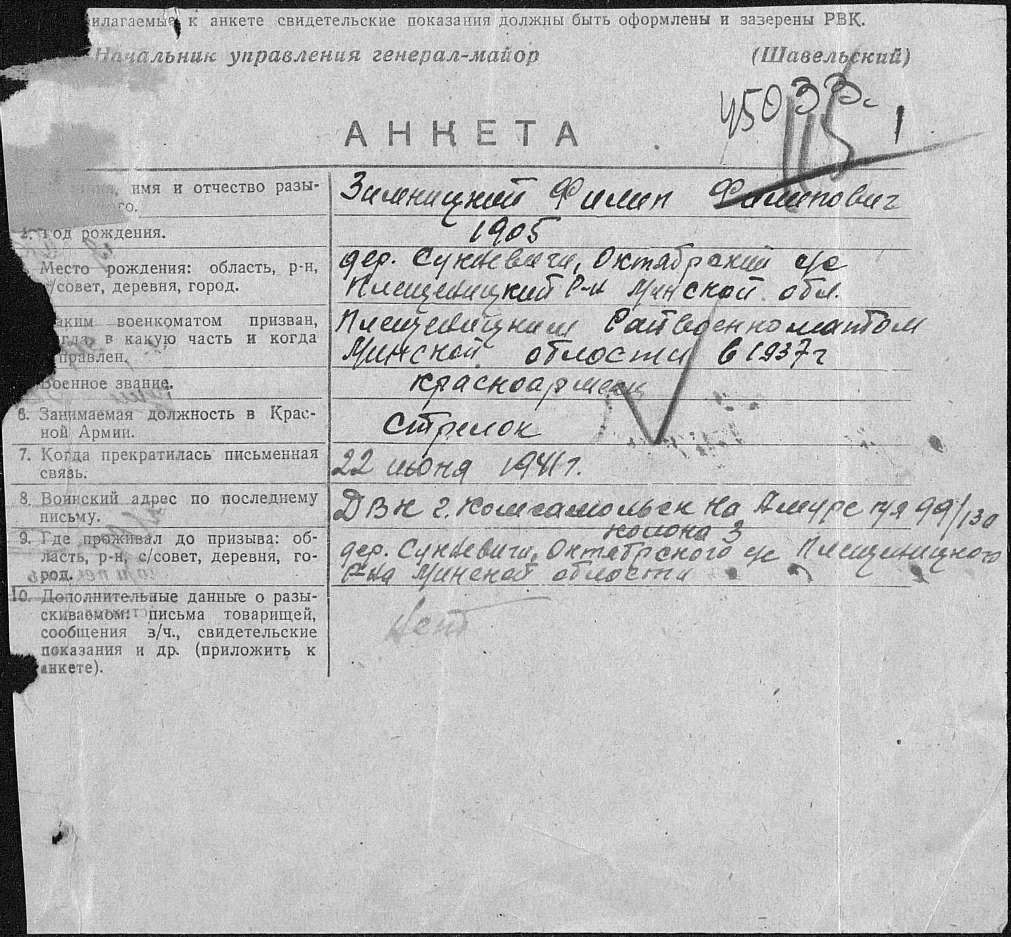 илагаемые к анкете свидетельские показания должны быть оформлены и заверены РВК.
Начальник управления генерал-майор (Шавельский)
45033с.
1
АНКЕТА
имя и отчество разы-
го.
Зимницкий Филип Филипович
2. Год рождения.
1905
Место рождения: область, р-н,
с/совет, деревня, город.
дер. Сункевичи, Октябрский с/с
Плещеницкий Р-н Минской обл.
аким военкоматом призван,
огда, в какую часть и когда
правлен.
Плещеницким Райвоенкоматом
Минской облости в 1937г
Военное звание.
красноармеец
6. Занимаемая должность в Крас-
ной Армии.
Стрелок
7. Когда прекратилась письменная
связь.
22 июня 1941г.
8. Воинский адрес по последнему
письму.
ДВК г. Комсамольск на Амуре п/я 99/130
колона 3
9. Где проживал до призыва: об-
ласть, р-н, с/совет, деревня, го-
род.
дер. Сункевичи, Октябрского с/с Плещеницкого
Р-на Минской облости
10. Дополнительные данные о разы-
скиваемом: письма товарищей,
сообщения в/ч., свидетельские
показания и др. (приложить к
анкете).